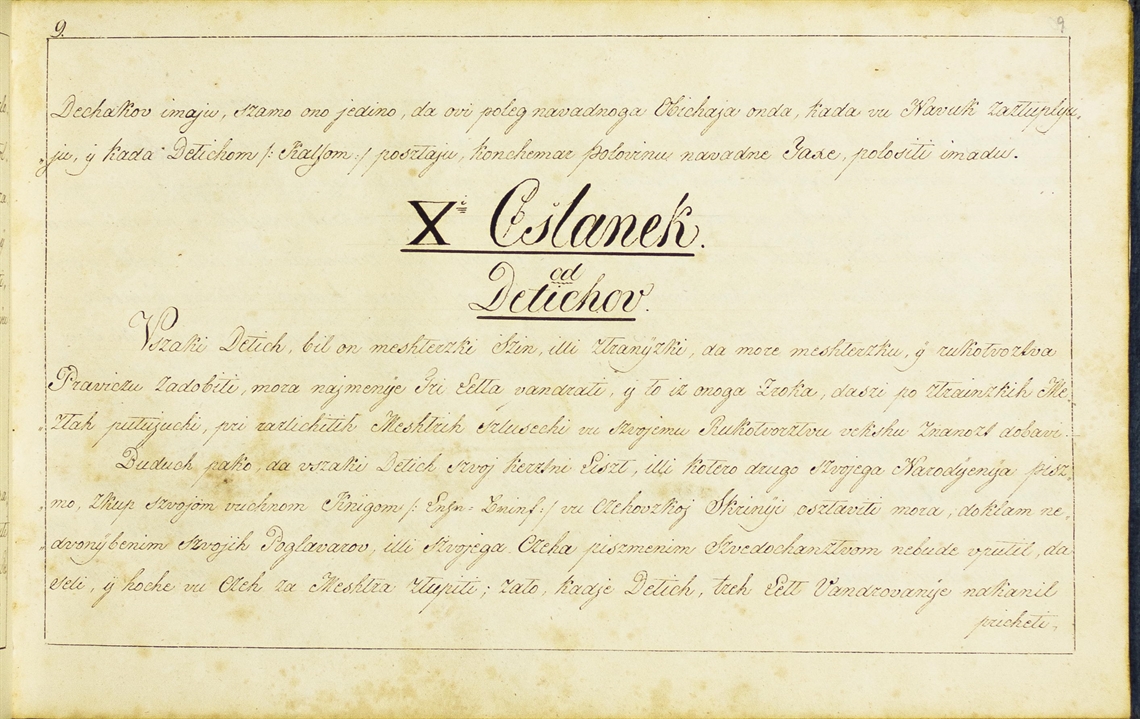 9.
9
Dechakov imaju, szamo ono jedino, da ovi poleg navadnoga Obichaja onda, kada vu Navuk zaztuplyu-
ju, y kada Detichom /: Kalfom :/ posztaju, konchemar Polovinu navadne Taxe, polositi imadu.
X.i Cslanek.
od
Detichov.
Vszaki Detich, bil on meshterzki Szin, illi ztranyzki, da more meshterzku, y rukotvoztva
Praviczu zadobiti, mora najmenye Tri Letta vandrati, y to iz onoga Zroka, daszi po ztrainzkih Me-
ztah putujuchi, pri razlichitih Meshtrih szlusechi vu szvojemu Rukotvorztvu vekshu Znanozt dobavi.
Buduch pako, da vszaki Detich szvoj kerztni Liszt, illi kotero drugo szvojega Narodyenya pisz-
mo, zkup szvojom vuchnom Knigom /: :/ vu Czehovzkoj Skrinyi osztaviti mora, doklam ne-
dvonybenim szvojih Poglavarov, illi szvojega Czeha piszmenim Szvedochanztvom nebude vputil, da
seli, y hoche vu Czeh za Meshtra ztupiti; zato, kadje Detich, treh Lett Vandrovanye nakanil
pricheti,